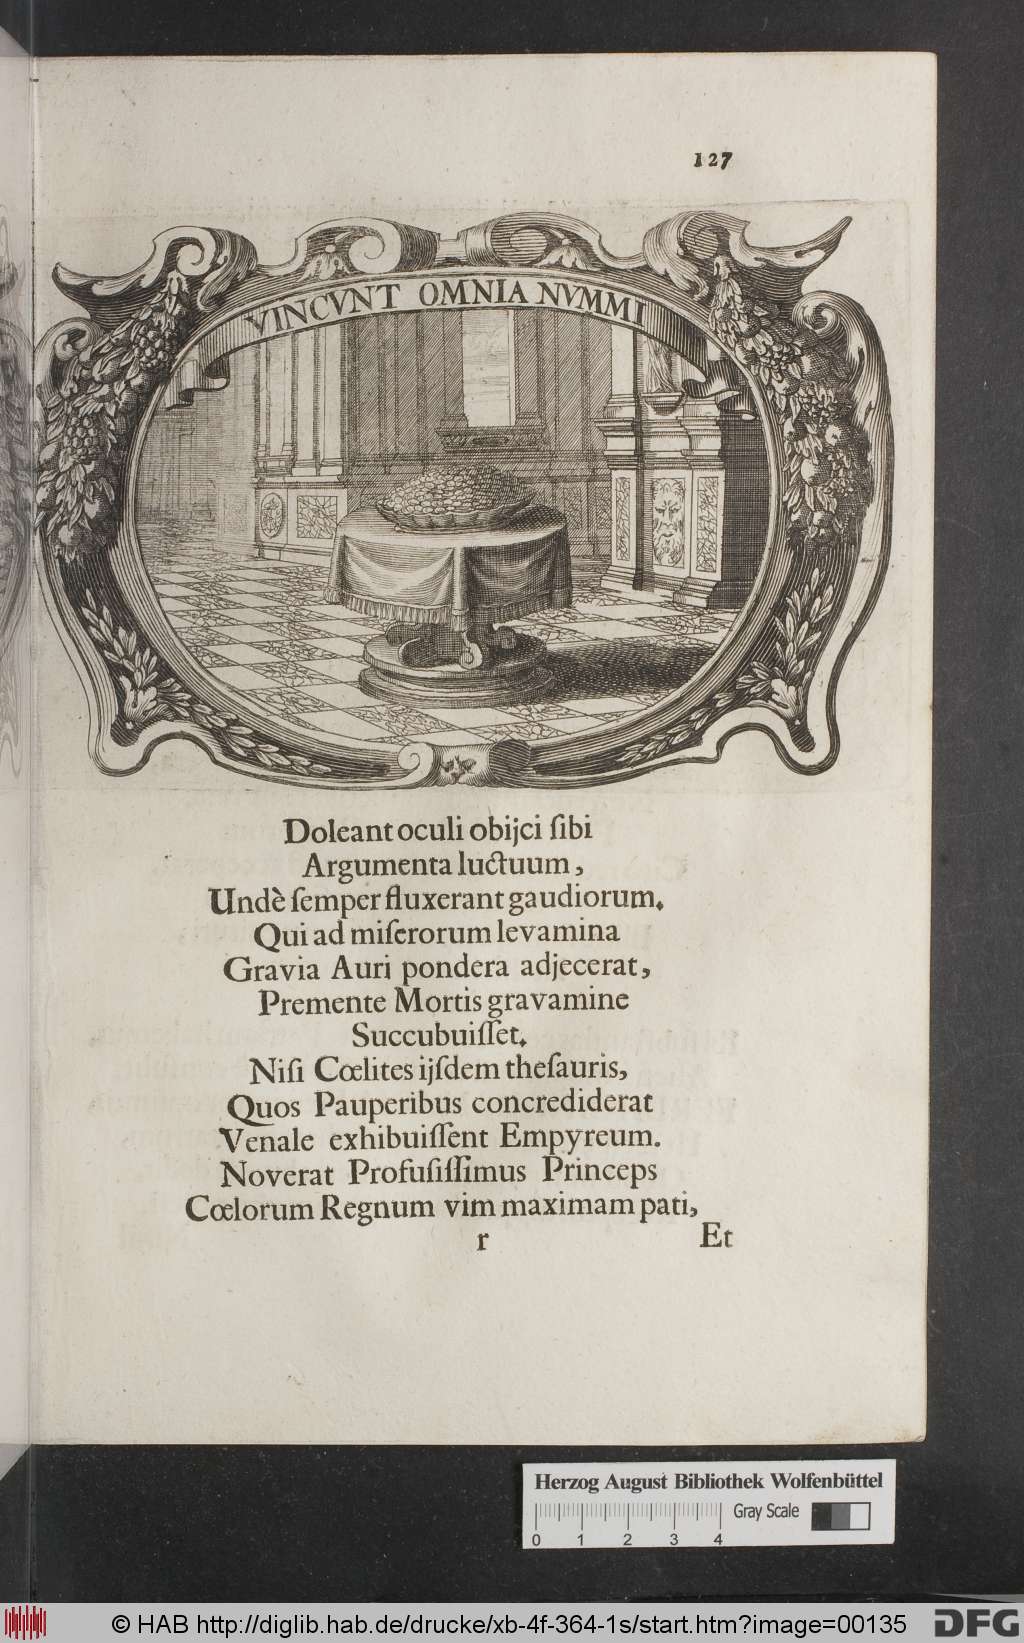 127
VINCVNT OMNIA NVMMI
Doleant oculi obijci ſibi
Argumenta luctuum,
Undè ſemper fluxerant gaudiorum.
Qui ad miſerorum levamina
Gravia Auri pondera adjecerat,
Premente Mortis gravamine
Succubuiſſet.
Niſi Cœlites ijſdem theſauris,
Quos Pauperibus concrediderat
Venale exhibuiſſent Empyreum.
Noverat Profuſiſſimus Princeps
Cœlorum Regnum vim maximam pati,
r Et
Herzog August Bibliothek Wolfenbüttel
Gray Scale
0 1 2 3 4
© HAB http://diglib.hab.de/drucke/xb-4f-364-1s/start.htm?image=00135
DFG